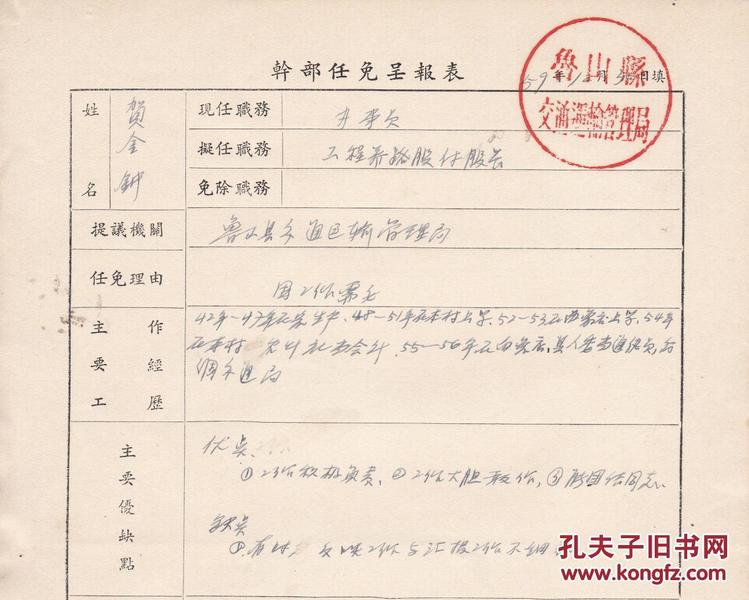 幹部任免呈報表
59年12月 日填
魯山縣
交通運輸管理局
姓名 賀金鈿
現任職務 办事员
擬任職務 工程养路股付股长
免除職務
提議機關 鲁山县交通运输管理局
任免理由 因工作需要
主要工作經歷
42年—47年在家生产、48—51年在本村上学、52—53在 上学、54年
在本村 农业社当会计、55—56年在 县人委当通信员,后
调交通局
主要優缺點
优点、
①工作积极负责、②工作大胆 ,③能团结同志.
缺点
①、有时, 反映工作与汇报工作不
孔夫子旧书网
www.kongfz.com